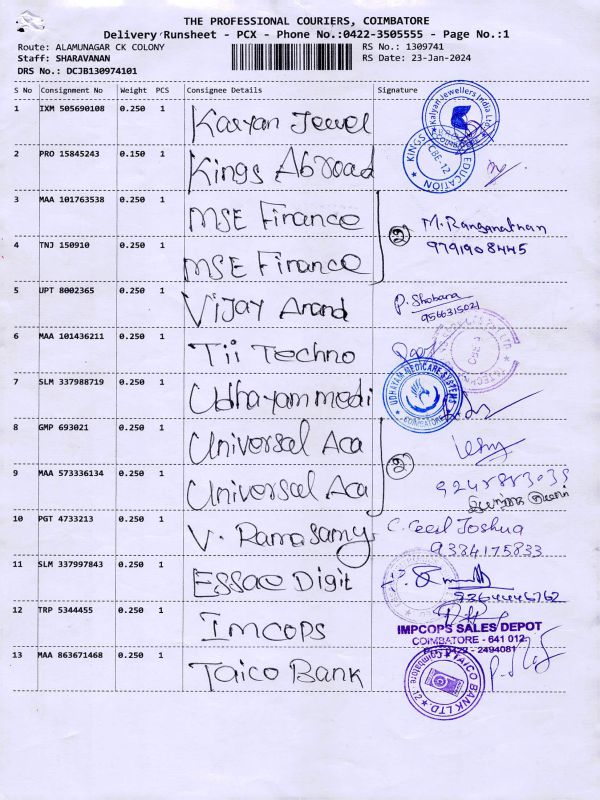 THE PROFESSIONAL COURIERS, COIMBATORE
Delivery Runsheet - PCX - Phone No.:0422-3505555 - Page No.:1
Route: ALAMUNAGAR CK COLONY
RS No.: 1309741
Staff: SHARAVANAN
RS Date: 23-Jan-2024
DRS No.: DCJB130974101
S No Consignment No Weight PCS Consignee Details Signature
1 IXM 505690108 0.250 1 Kalyan Jewel
Kalyan Jewellers India Ltd
COIMBATORE
2 PRO 15845243 0.150 1 Kings Abroad
KINGS EDUCATION
CBE-12
3 MAA 101763538 0.250 1 MSE Finance
2 M. Ranganathan
9791908445
4 TNJ 150910 0.250 1 MSE Finance
5 UPT 8002365 0.250 1 Vijay Anand P. Shobana
9566315021
6 MAA 101436211 0.250 1 Tii Techno
7 SLM 337988719 0.250 1 Udhayam medi
UDHAYAM MEDICARE SYSTEMS
COIMBATORE
8 GMP 693021 0.250 1 Universal Aca
2
9 MAA 573336134 0.250 1 Universal Aca
10 PGT 4733213 0.250 1 V. Ramasamy C. Cecil Joshua
9384175833
11 SLM 337997843 0.250 1 Essae Digit
12 TRP 5344455 0.250 1 Imcops
IMPCOPS SALES DEPOT
COIMBATORE - 641 012
Ph: 0422 - 2494081
13 MAA 863671468 0.250 1 Taico Bank
TAICO BANK LTD.
Coimbatore-12